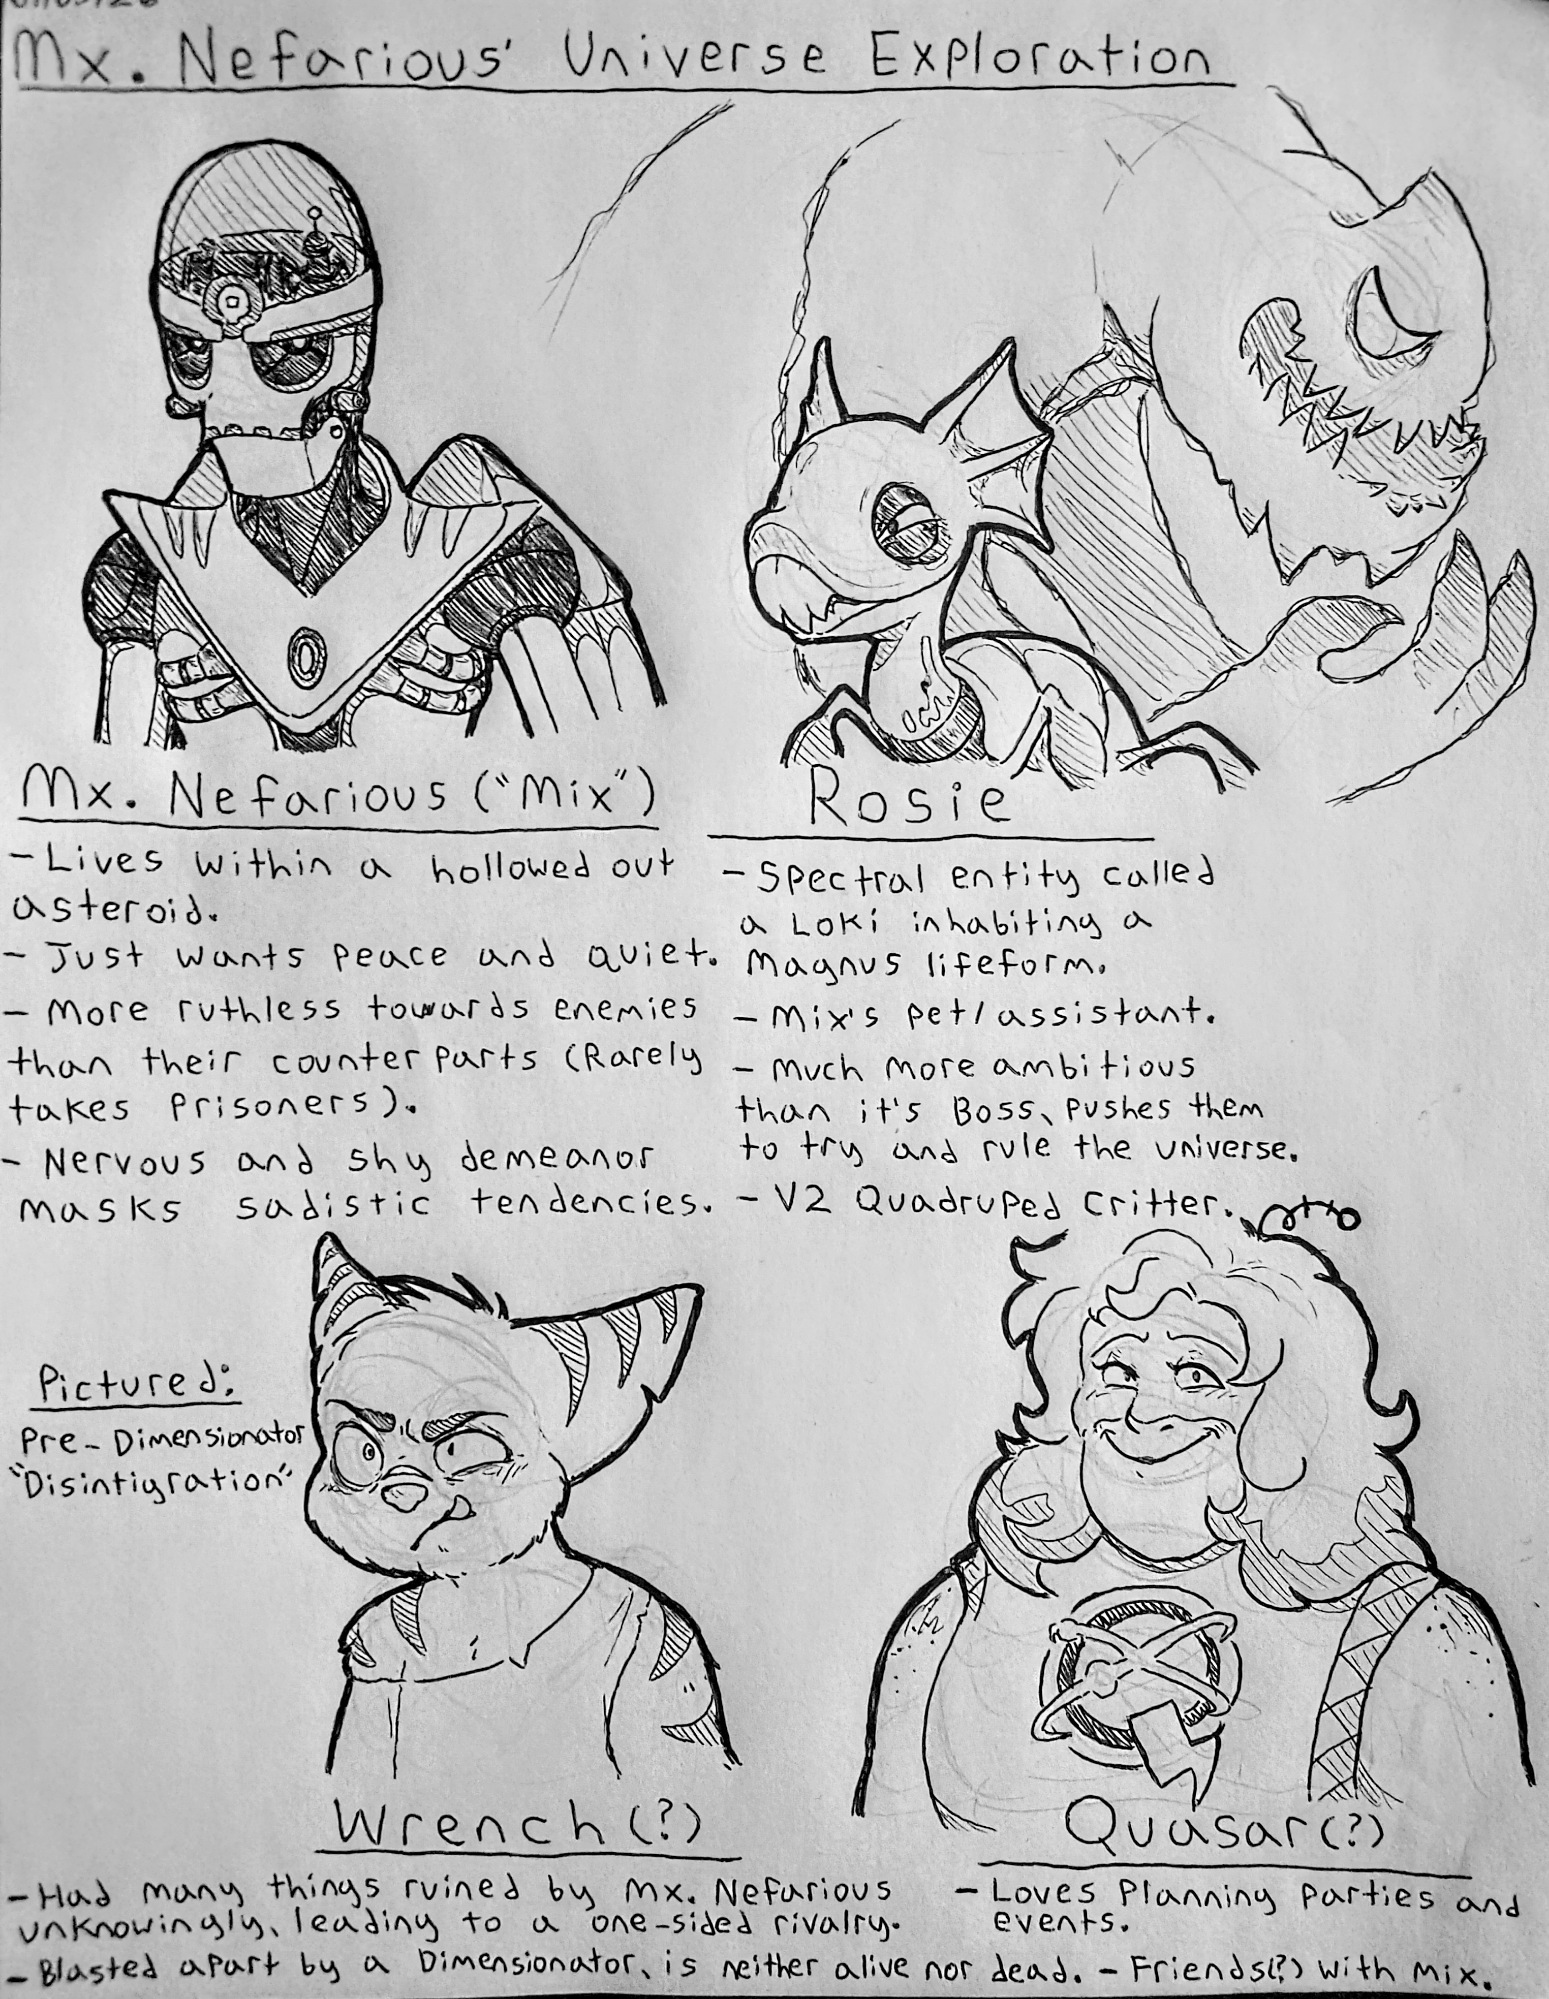 Mx. Nefarious' Universe Exploration
Mx. Nefarious ("Mix")
- Lives within a hollowed out
asteroid.
- Just wants peace and quiet.
- More ruthless towards enemies
than their counterparts (Rarely
takes prisoners).
- Nervous and shy demeanor
masks sadistic tendencies.
Rosie
- Spectral entity called
a Loki inhabiting a
Magnus lifeform.
- Mix's pet/assistant.
- Much more ambitious
than it's Boss, pushes them
to try and rule the universe.
- V2 Quadruped Critter.
Pictured:
Pre-Dimensionator
"Disintigration"
Wrench(?)
- Had many things ruined by Mx. Nefarious
unknowingly, leading to a one-sided rivalry.
- Blasted apart by a Dimensionator, is neither alive nor dead.
Quasar(?)
- Loves Planning Parties and
events.
- Friends(?) with Mix.